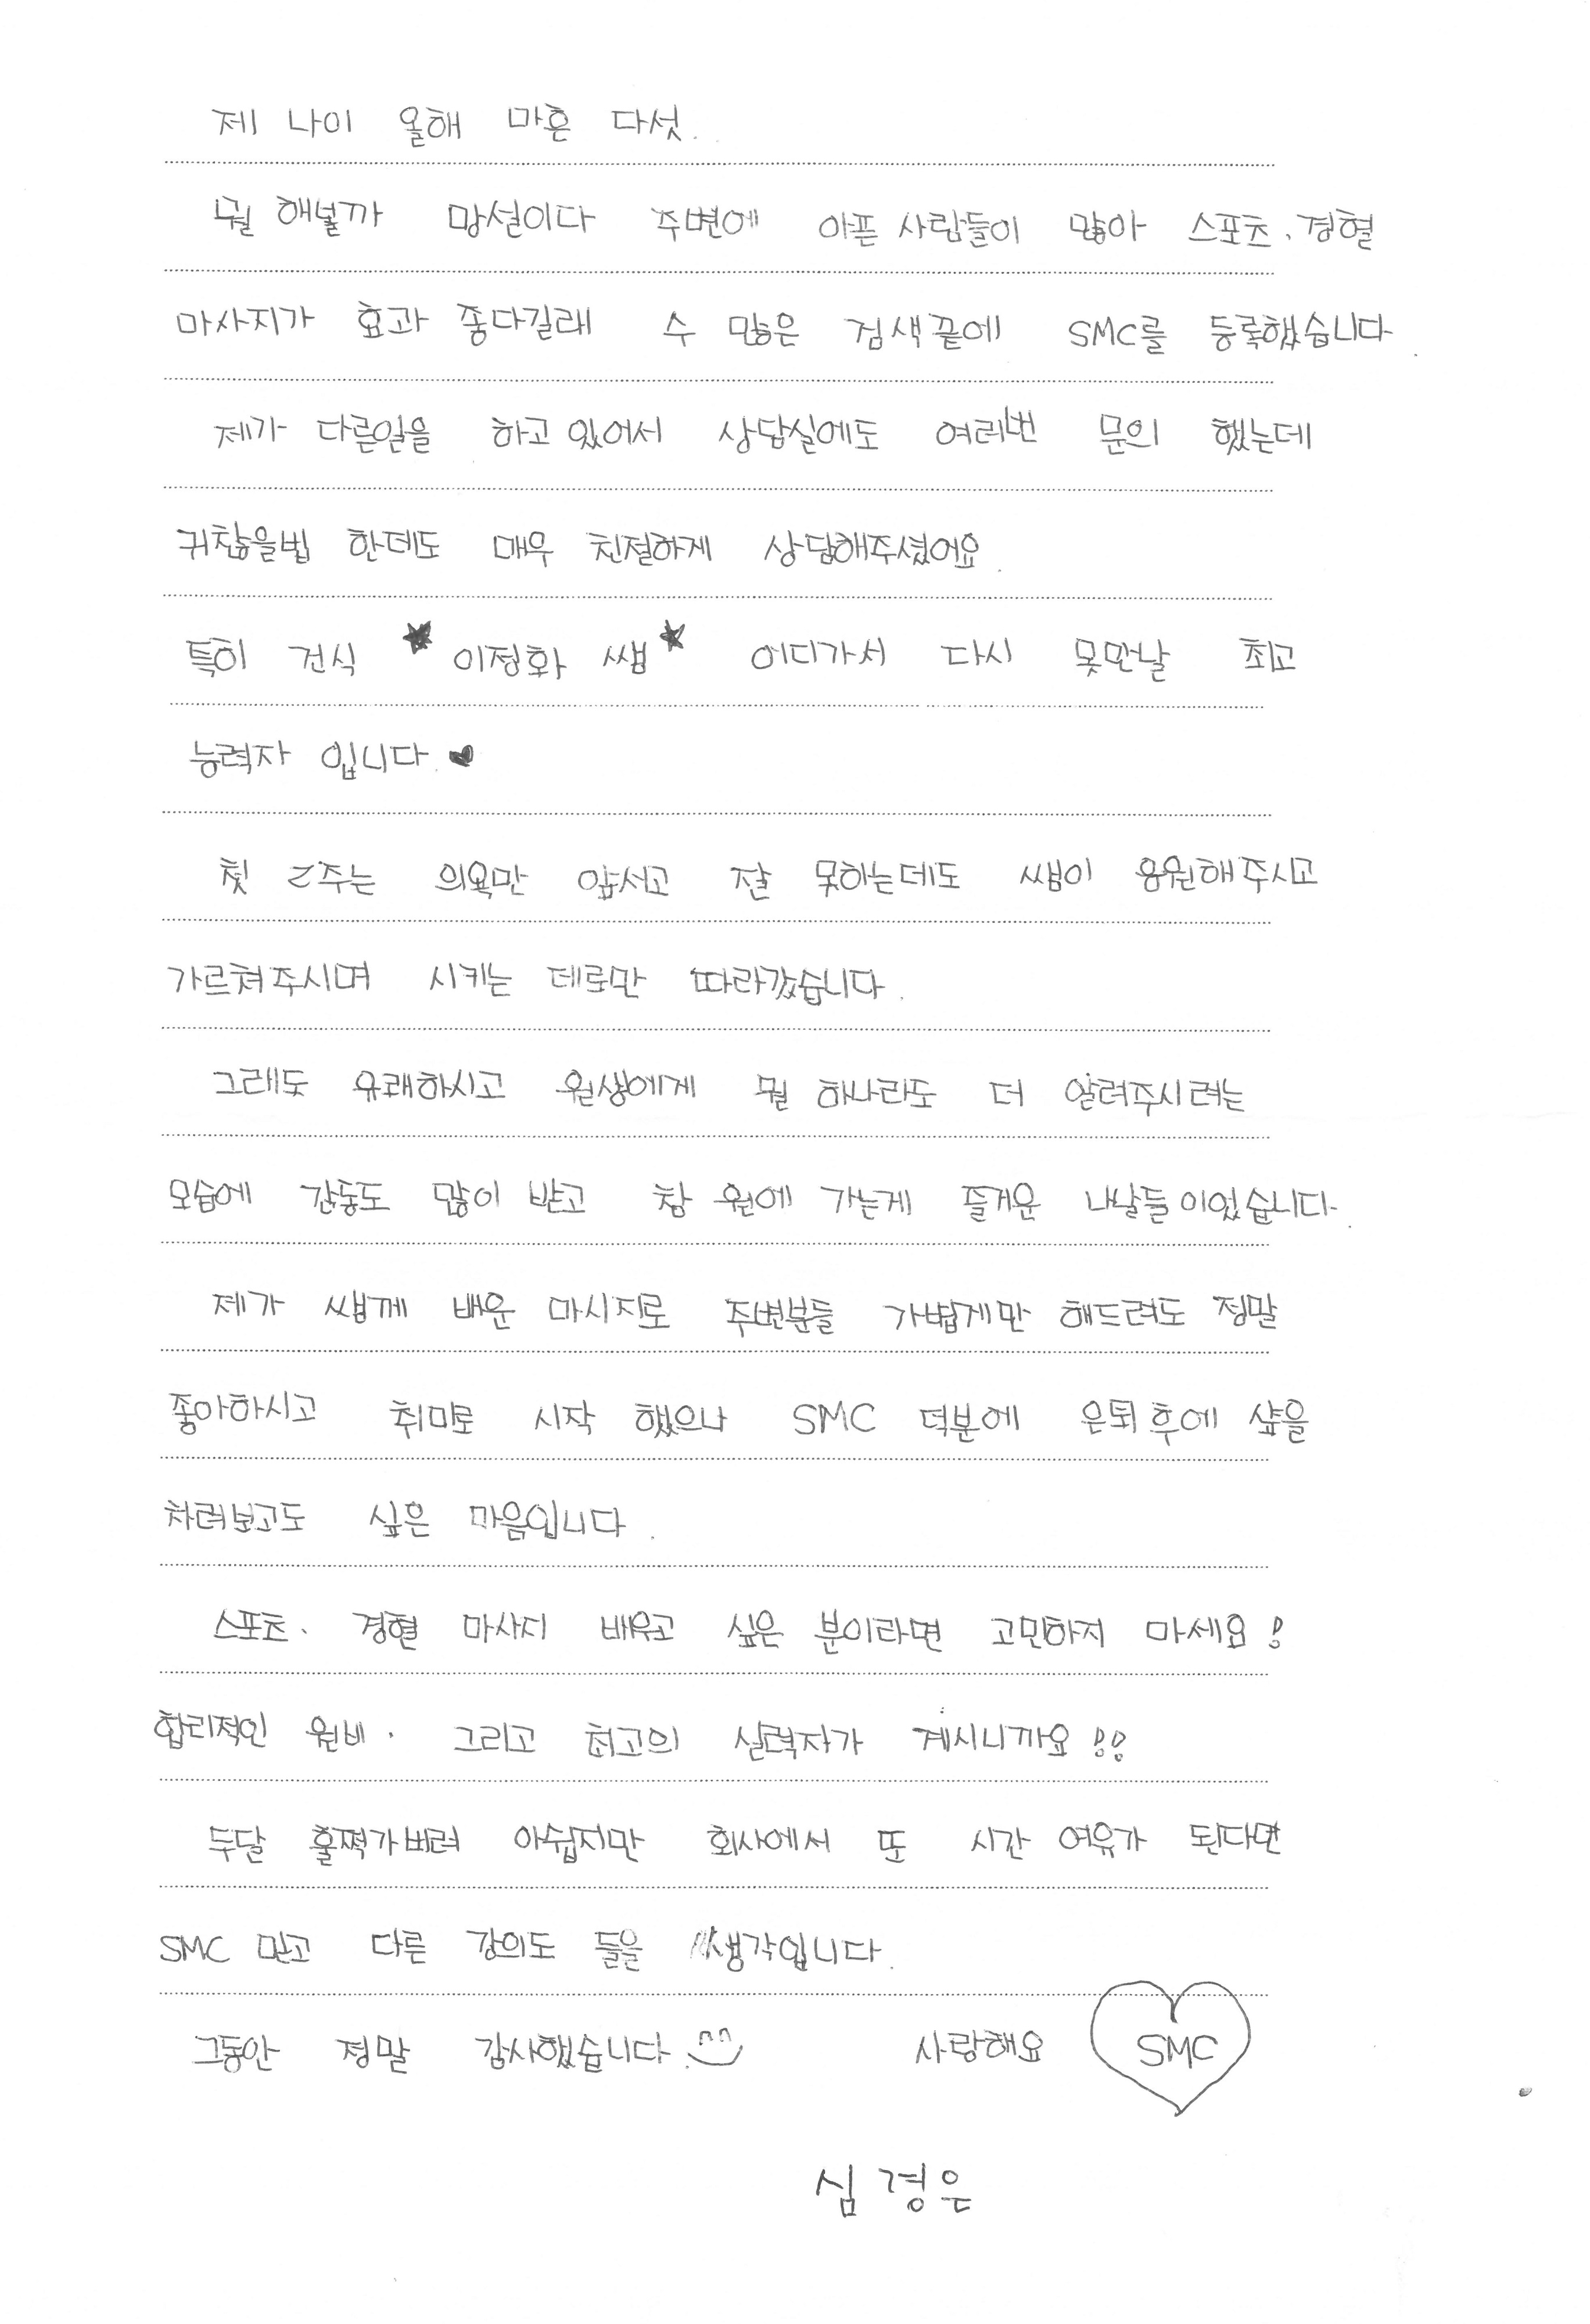 제 나이 올해 마흔 다섯.
뭘 해볼까 망설이다 주변에 아픈 사람들이 많아 스포츠, 경혈
마사지가 효과 좋다길래 수 많은 검색끝에 SMC를 등록했습니다.
제가 다른일을 하고 있어서 상담실에도 여러번 문의 했는데
귀찮을법 한데도 매우 친절하게 상담해주셨어요.
특히 건식 ★이정화 쌤★ 어디가서 다시 못만날 최고
능력자 입니다.♥
첫 2주는 의욕만 앞서고 잘 못하는데도 쌤이 응원해주시고
가르쳐주시며 시키는 데로만 따라갔습니다.
그래도 유쾌하시고 원생에게 뭘 하나라도 더 알려주시려는
모습에 감동도 많이 받고 참 원에 가는게 즐거운 나날들이었습니다.
제가 쌤께 배운 마시지로 주변분들 가볍게만 해드려도 정말
좋아하시고 취미로 시작 했으나 SMC 덕분에 은퇴후에 샾을
차려보고도 싶은 마음입니다.
스포츠. 경혈 마사지 배우고 싶은 분이라면 고민하지 마세요!
합리적인 원비. 그리고 최고의 실력자가 계시니까요!!
두달 훌쩍가버려 아쉽지만 회사에서 또 시간 여유가 된다면
SMC 믿고 다른 강의도 들을 생각입니다.
그동안 정말 감사했습니다. 사랑해요 SMC
심경은